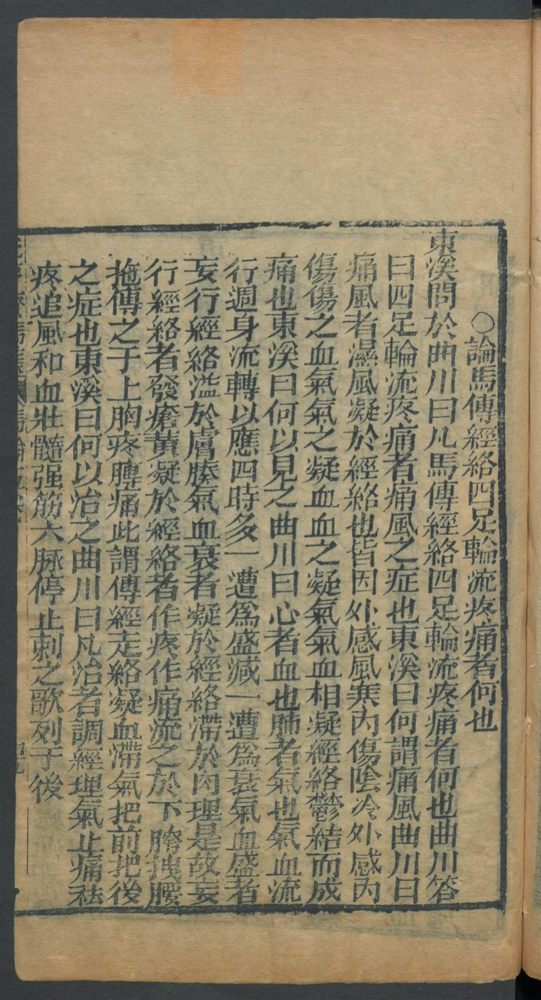 ○論馬傳經絡四足輪流疼痛者何也
東溪問於曲川曰凡馬傳經絡四足輪流疼痛者何也曲川答
曰四足輪流疼痛者痛風之症也東溪曰何謂痛風曲川曰
痛風者濕風凝於經絡也皆因外感風寒内傷陰冷外感内
傷傷之血氣氣之凝血血之凝氣氣血相凝經絡鬱結而成
痛也東溪曰何以見之曲川曰心者血也肺者氣也氣血流
行週身流轉以應四時多一遭爲盛減一遭爲衰氣血盛者
妄行經絡溢於膚腠氣血衰者凝於經絡滯於肉理是故妄
行經絡者發瘡黃凝於經絡者作疼作痛流之於下胯拽腰
拖傳之于上胸疼膊痛此謂傳經走絡凝血滯氣把前把後
之症也東溪曰何以治之曲川曰凡治者調經理氣止痛袪
疼追風和血壯髓强筋六脉停止刺之歌列于後